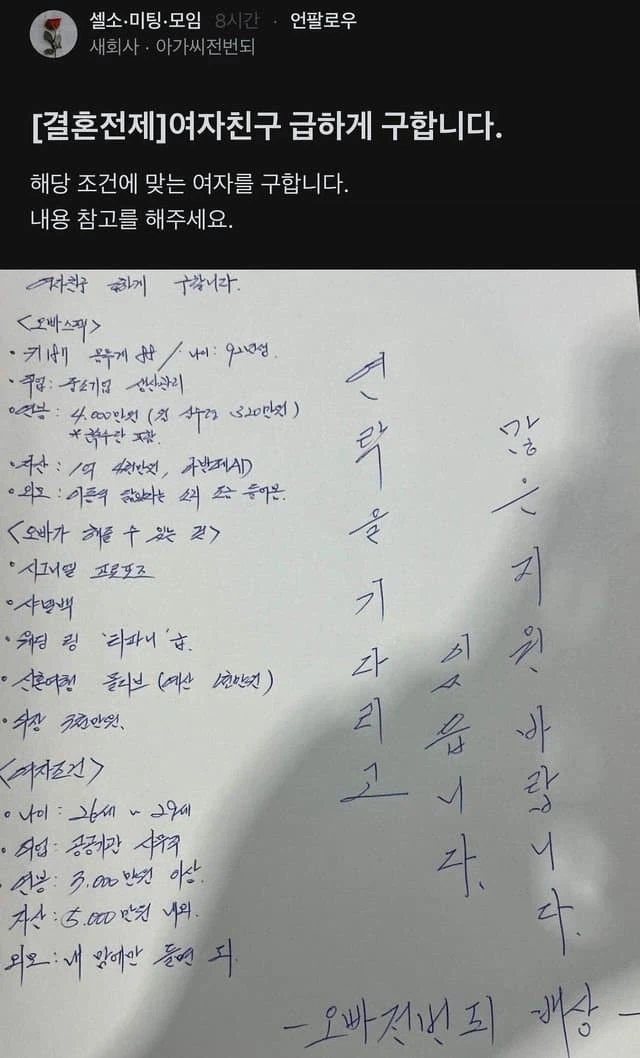 셀소·미팅·모임 8시간 · 언팔로우
새회사 · 아가씨전번되
[결혼전제]여자친구 급하게 구합니다.
해당 조건에 맞는 여자를 구합니다.
내용 참고를 해주세요.
여자친구 급하게 구합니다.
<오빠스펙>
• 키 187 몸무게 88 / 나이: 92년생.
• 직업: 중소기업 생산관리
• 연봉: 4.000만원 (월 실수령 320만원)
* 특수란 포함.
• 자산: 1억 4천만원, 아반떼AD
• 외모: 이름의 닮았다는 소리 조금 들어봄.
<오빠가 해줄 수 있는 것>
• 시그니엘 프로포즈
• 샤넬백
• 웨딩 링 '티파니' 급.
• 신혼여행 몰디브 (예산 1천만원)
• 차장 5천만원.
<여자조건>
• 나이: 26세 ~ 29세
• 직업: 공공기관 사무직
연봉: 3.000만원 이상.
자산: 5.000만원 내외.
외모: 내 맘에만 들면 되.
연락을 기다리고
있읍니다.
많은 지원 바랍니다.
- 오빠전번되 배상 -